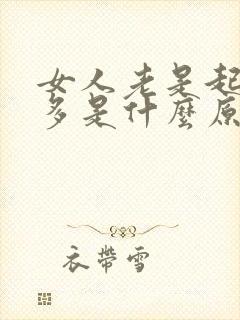 女人老是起
多是什麼原
衣帶雪